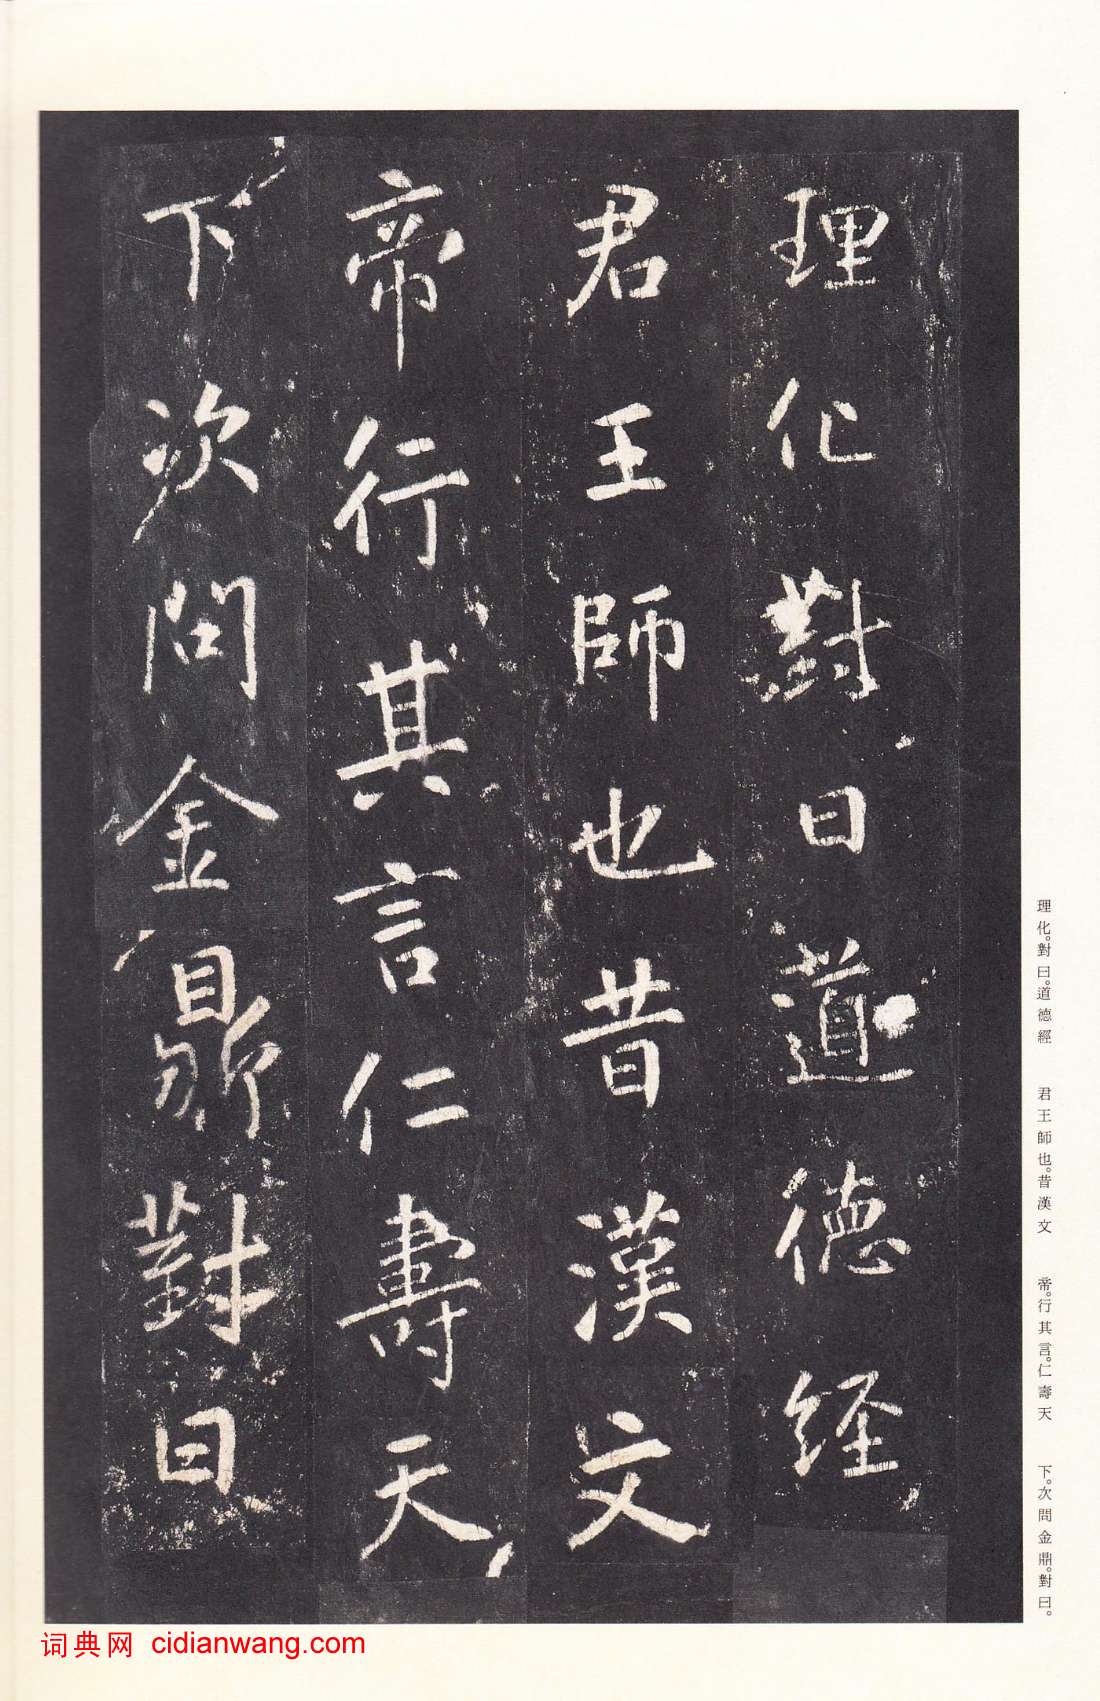 理化對曰道德經
君王師也昔漢文
帝行其言仁壽天
下次問金鼎對曰
理化。對曰。道德經 君王師也。昔漢文 帝。行其言。仁壽天 下。次問金鼎。對曰。
词典网 cidianwang.com